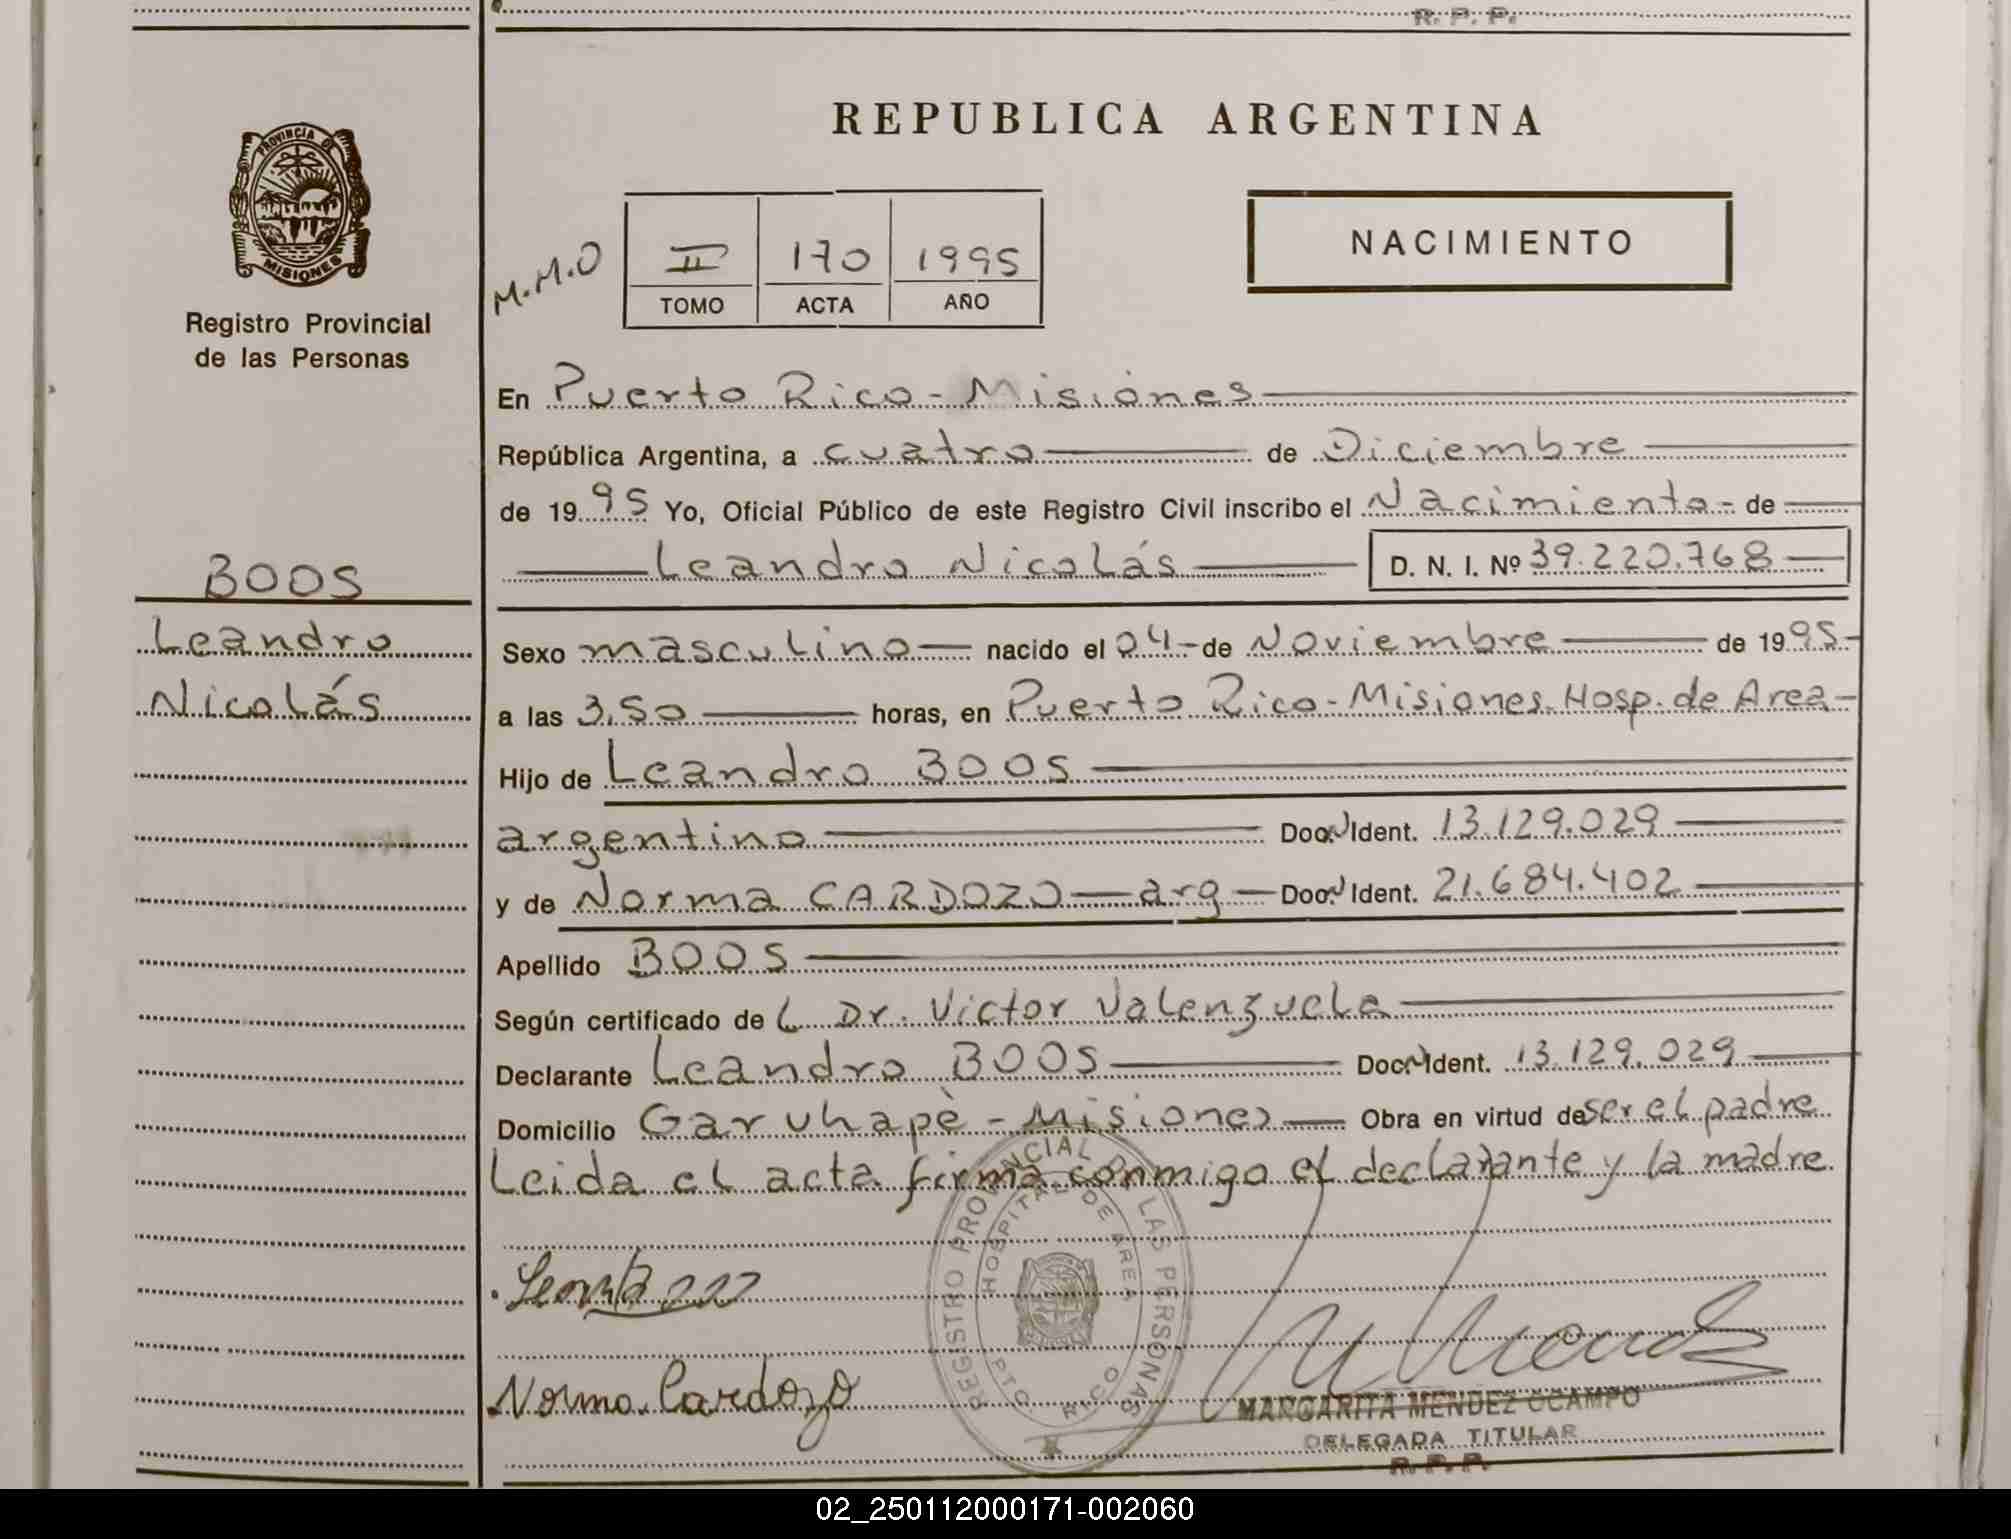 R. P. P.
REPUBLICA ARGENTINA
PROVINCIA DE
MISIONES
Registro Provincial
de las Personas
M.M.O
II 170 1995
TOMO ACTA AÑO
NACIMIENTO
En Puerto Rico - Misiones
República Argentina, a cuatro de Diciembre
de 1995 Yo, Oficial Público de este Registro Civil inscribo el Nacimiento - de
Leandro Nicolás D. N. I. Nº 39.220.768
BOOS
Leandro
Nicolás
Sexo masculino nacido el 04 - de Noviembre de 1995
a las 3,50 horas, en Puerto Rico - Misiones. Hosp. de Area
Hijo de Leandro BOOS
argentino Doc. Ident. 13.129.029
y de Norma CARDOZO arg Doc. Ident. 21.684.402
Apellido BOOS
Según certificado de L Dr. Victor Valenzuela
Declarante Leandro BOOS Doc. Ident. 13.129.029
Domicilio Garuhapè - Misiones Obra en virtud de ser el padre
Leida el acta firma conmigo el declarante y la madre
REGISTRO PROVINCIAL DE LAS PERSONAS
HOSPITAL DE AREA
PTO RICO
Norma Cardozo
MARGARITA MENDEZ OCAMPO
DELEGADA TITULAR
R. P. P.
02_250112000171-002060